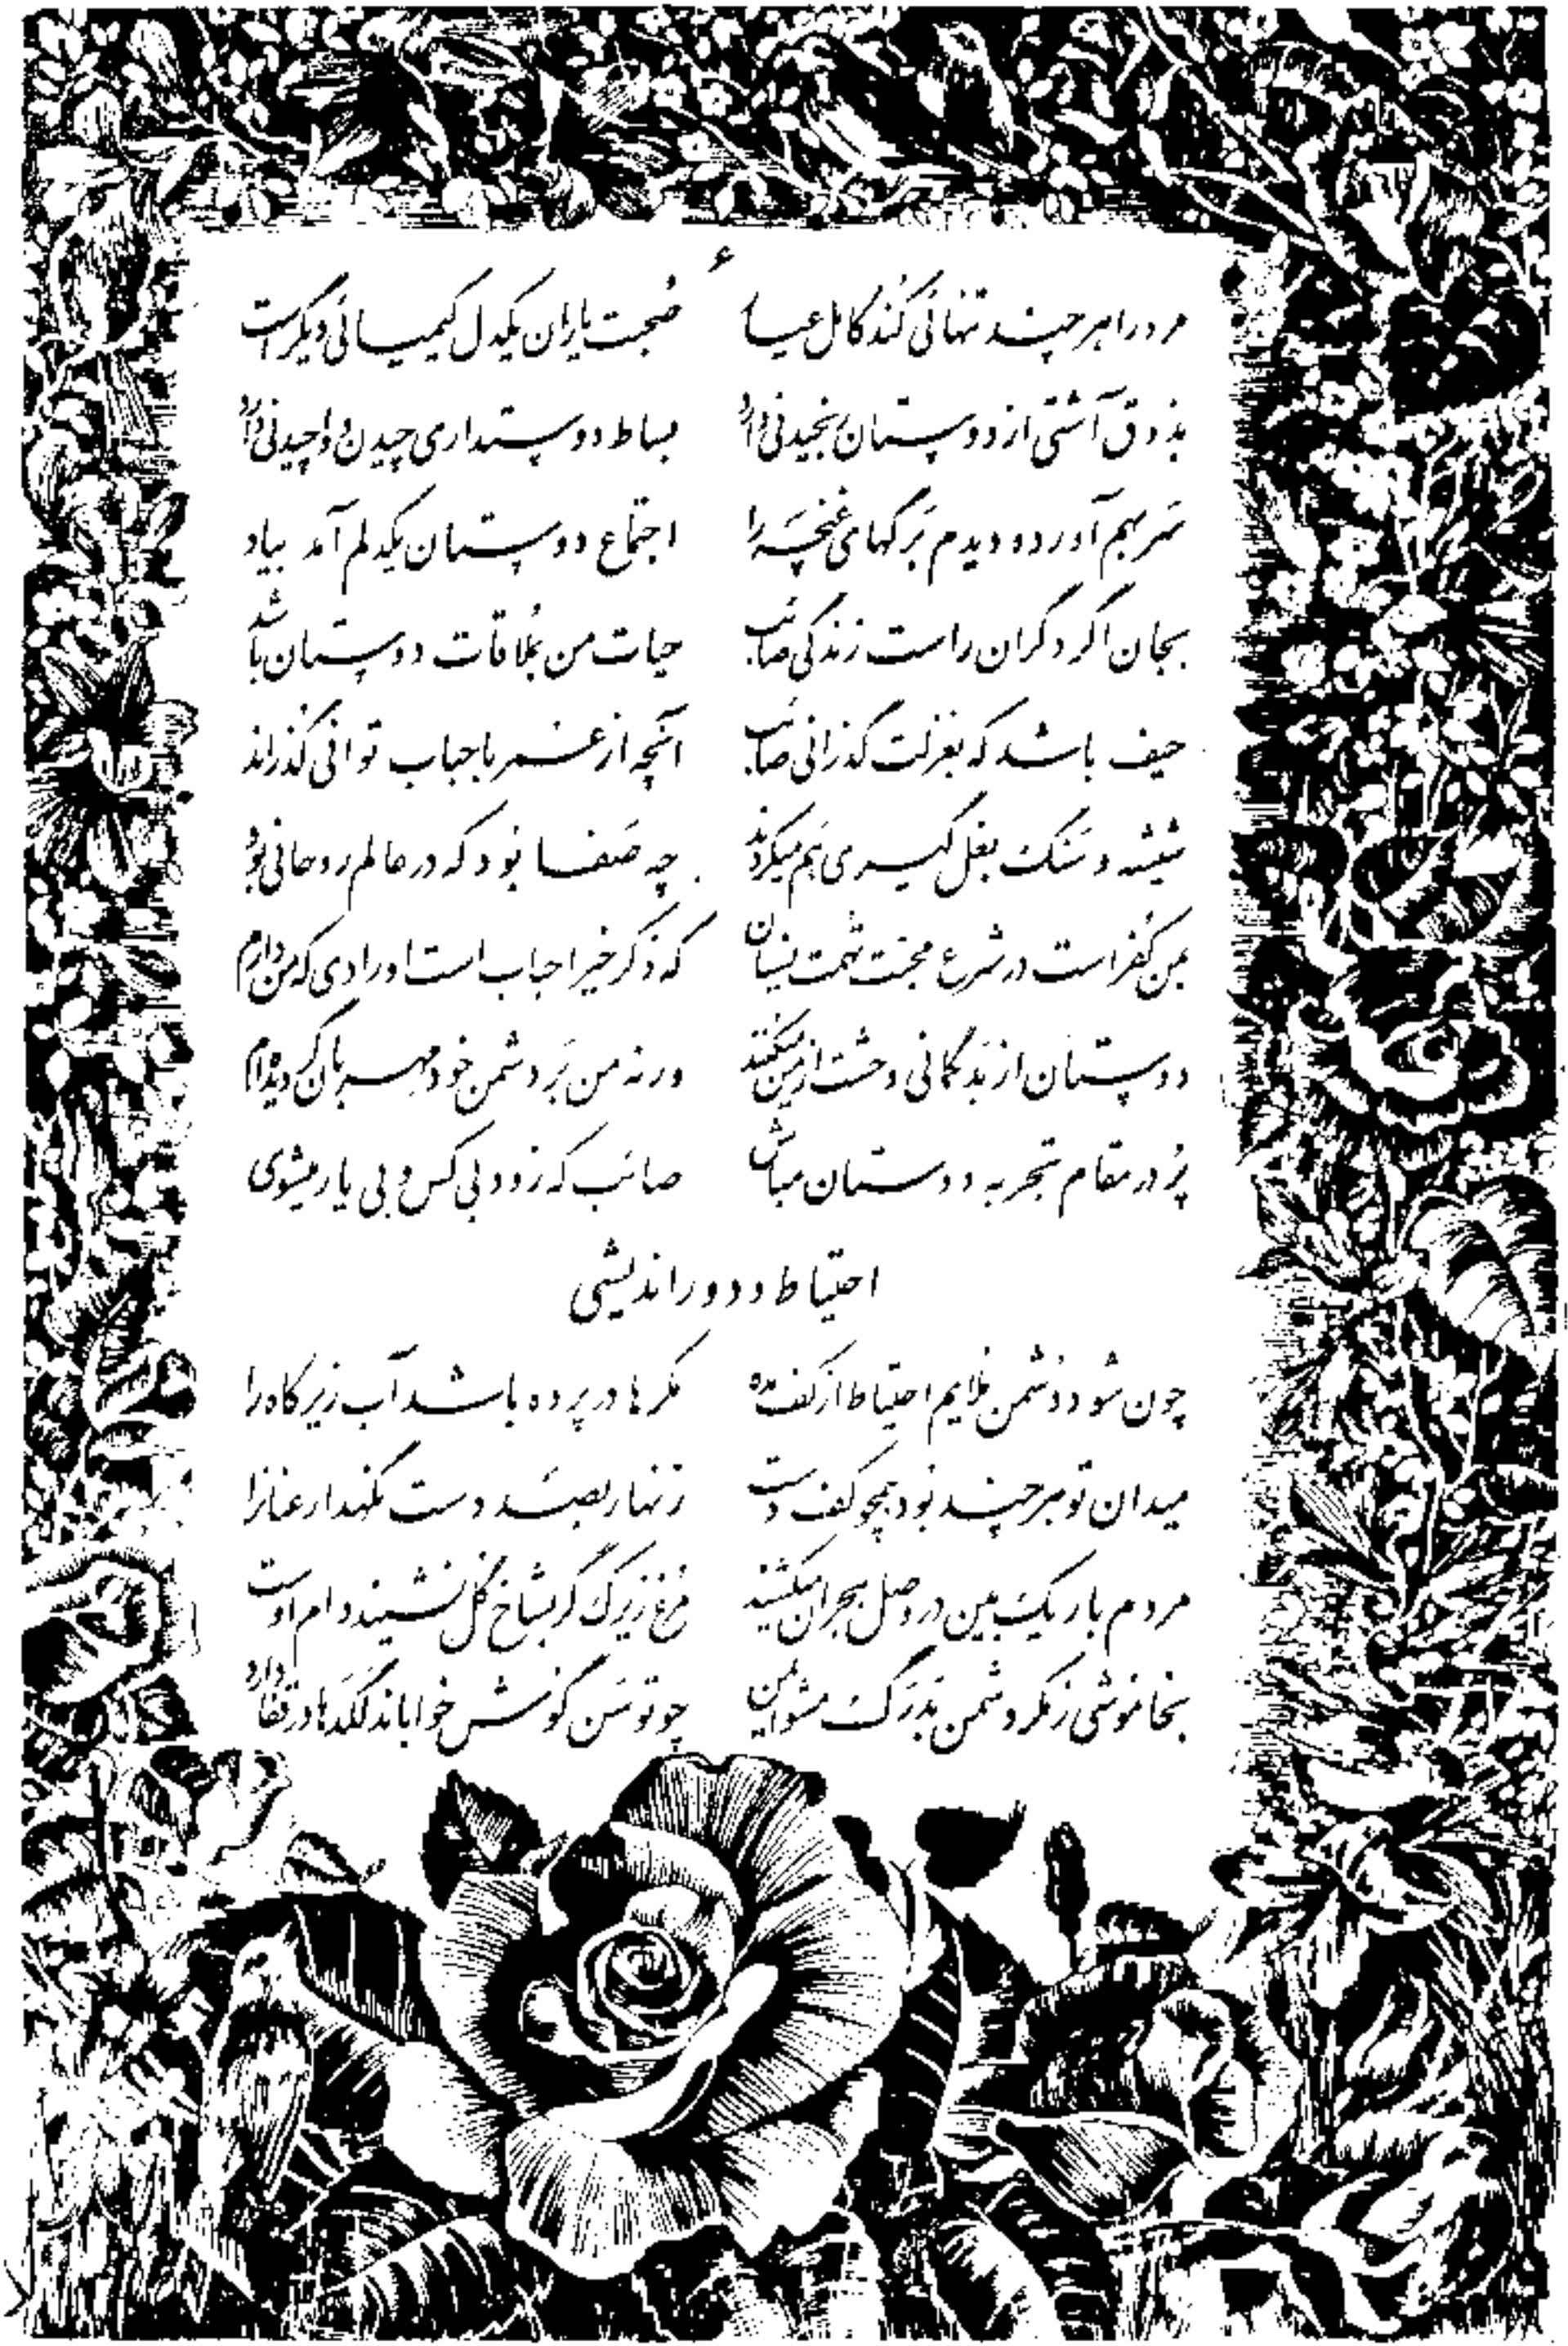 ۶
مرد را هر چند تنهائی کُند کامل عیار صُحبت یاران یکدل کیمیائی دیگر است
بذوق آشتی از دوستان رنجیدنی دارد بساط دوستداری چیدن و واچیدنی دارد
سَر بهم آورده دیدم بَرگهای غنچَه را اجتماع دوستان یکدلم آمد بیاد
بجان اگر دگران راست زندگی صائب حیات من بمُلاقات دوستان باشد
حیف باشد که بعزلت گذرانی صائب آنچه از عمر باحباب توانی گذراند
شیشه و سَنگ بغل گیری هَم میکردند چه صَفا بود که در عالم روحانی بود
بمن کُفر است در شرع محبّت تُهمت نسیان که ذکر خیر احباب است اورادی که من دارم
دوستان از بَدگمانی وحشت از من میکنند ورنه من بَر دشمن خود مهربان گردیده‌ام
پُر در مقام تجربه دوستان مباش صائب که زود بی کس و بی یار میشوی
احتیاط و دوراندیشی
چون شود دُشمن مُلایم احتیاط از کف مده مکرها در پرده باشد آب زیر کاه را
میدان تو هر چند بُود همچو کف دست زنهار بصَد دست نگهدار عنانرا
مردم باریک بین در وصل هجران میکشند مُرغ زیرک گر بشاخ گل نشیند دام اوست
بخاموشی ز مکر دشمن بَدرَگ مشو ایمن چو توسَن گوش خواباند لگدها در قفا دارد